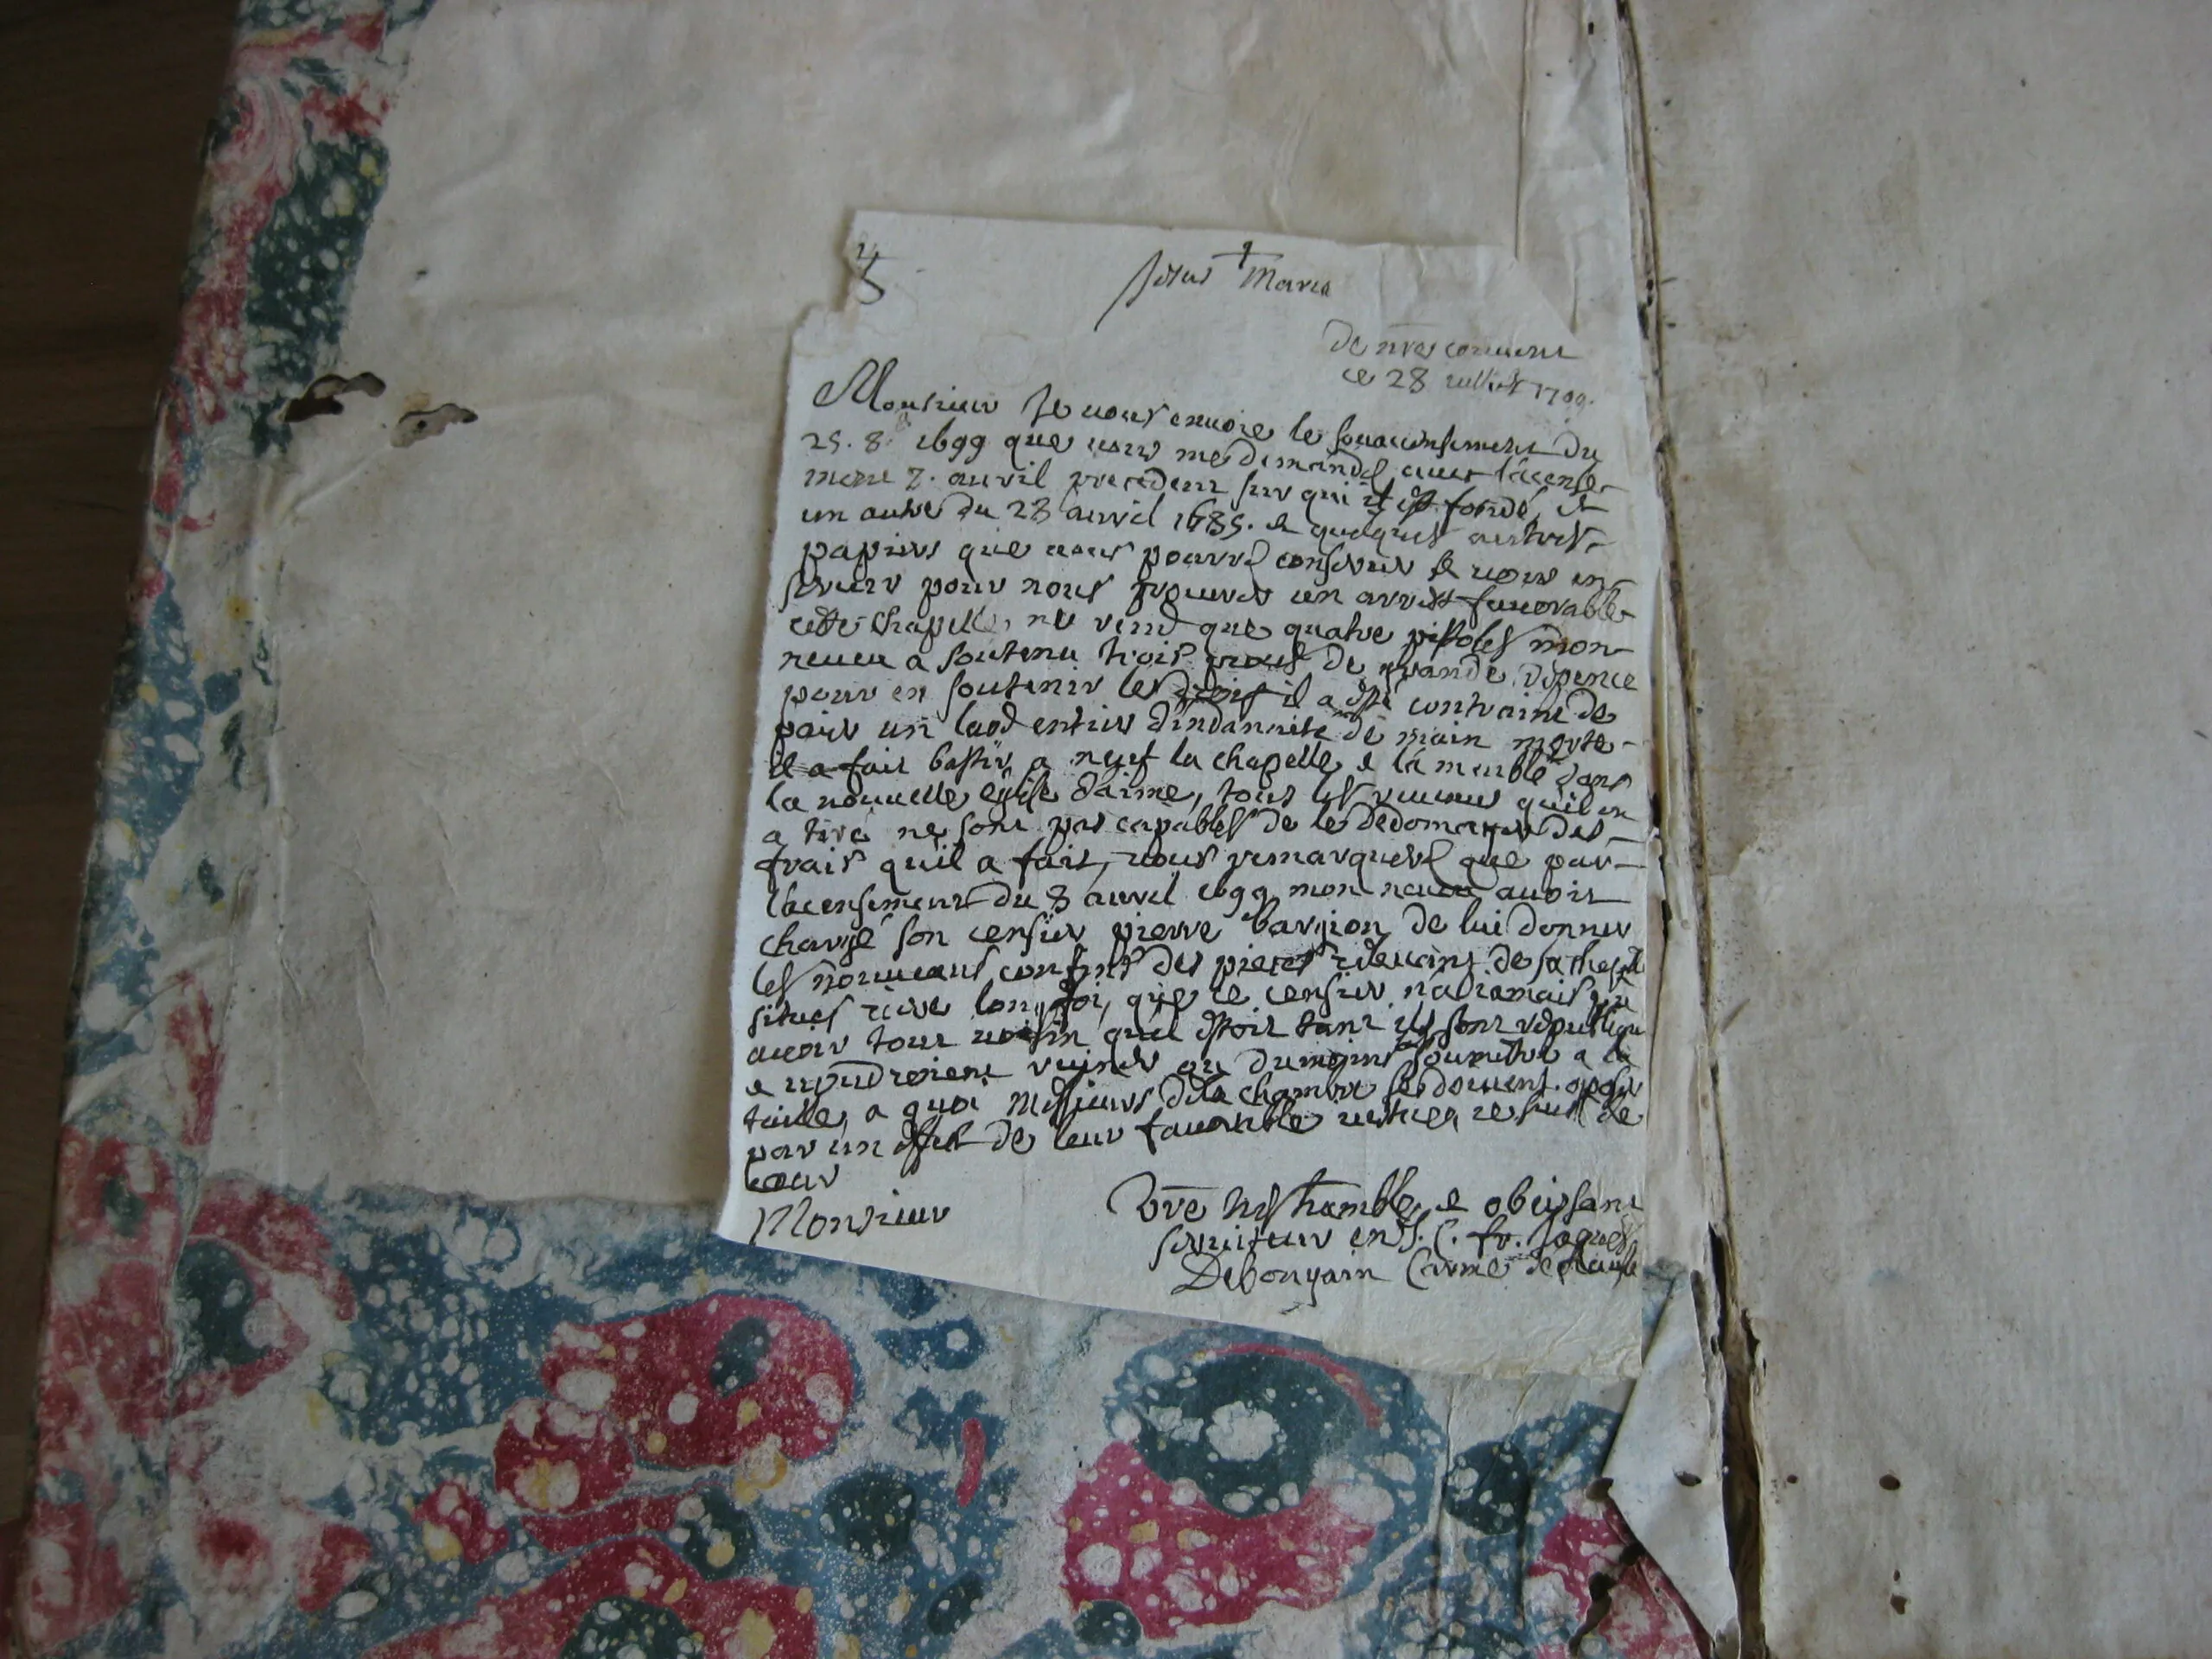 Jesus † Maria
De nre couvent
ce 28 1709.
Monsieur Je vous envoie le sousacensement Du
25. 8. 1699 que vous me demandes avec lacense-
ment 7. avril precedent sur qui il est fondé, et
un autre du 28 avril 1685. et quelques autres
papiers que vous pourres conserver et vous en
servir pour nous procurer un arrest favorable
cette chapelle, ne rend que quatre pistoles mon
neveu a soutenu trois proces de grande depence
pour en soutenir les droits il a esté contraint de
paier un laod entier d'indannité de main morte
il a fait bastir a neuf la chapelle, et la meublé dans
la nouvelle eglise d'aime, tous les revenus quil en
a tiré ne sont pas capables de le dedomager des
frais quil a fait, vous remarqueres que par
lacensement du 8 avril 1699 mon neveu avoit
chargé son censier pierre bargion de lui donner
les nouveaus confins des pieces de sa
situes que ce censier
avoir tout quil estoit ils sont
et voudroient ou du moins soumettre a la
taille, a quoi Messieurs de la chambre se doivent oposer
par un effet de leur favorable de
cour
Monsieur
Vre tres humble, et obeissant
serviteur en J. C. fr. Jaques
Carme